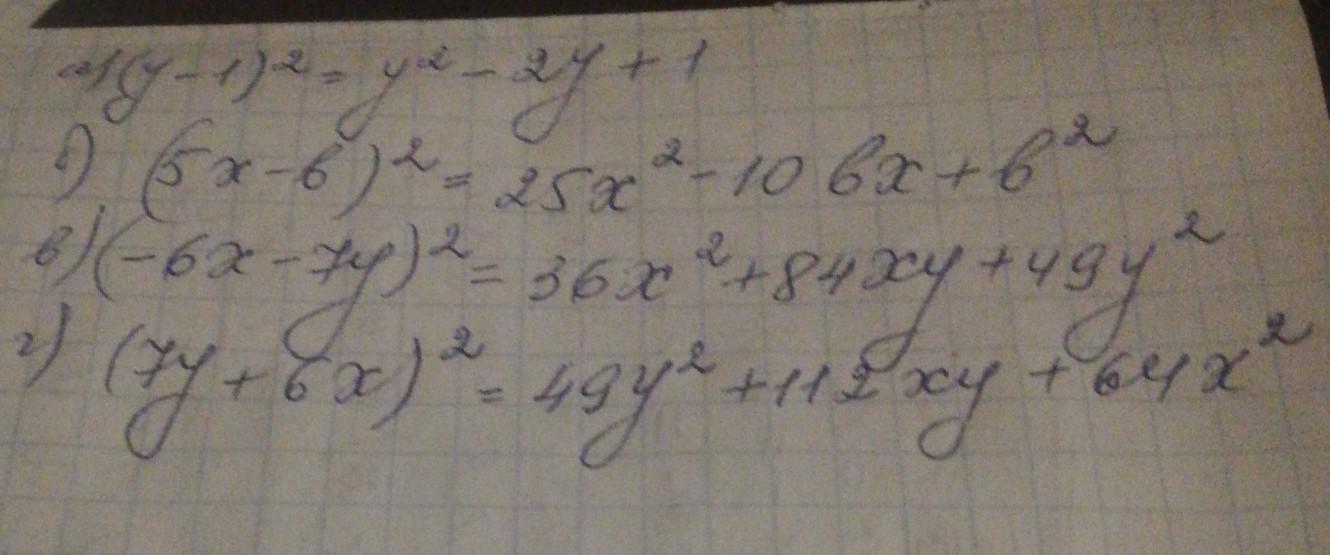 а) (y-1)² = y² - 2y + 1
б) (5x-b)² = 25x² - 10bx + b²
в) (-6x-7y)² = 36x² + 84xy + 49y²
г) (7y+6x)² = 49y² + 112xy + 64x²